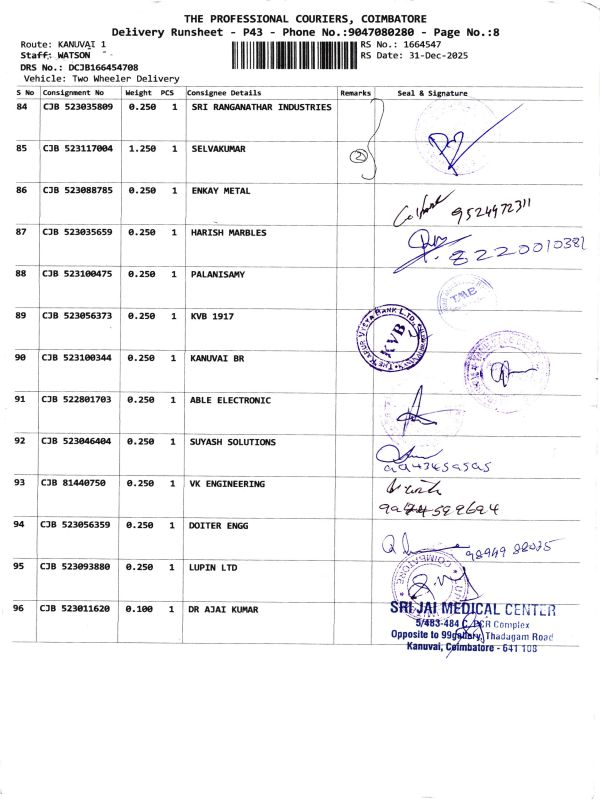 THE PROFESSIONAL COURIERS, COIMBATORE
Delivery Runsheet - P43 - Phone No.:9047080280 - Page No.:8
Route: KANUVAI 1
RS No.: 1664547
Staff: WATSON
RS Date: 31-Dec-2025
DRS No.: DCJB166454708
Vehicle: Two Wheeler Delivery
S No Consignment No Weight PCS Consignee Details Remarks Seal & Signature
84 CJB 523035809 0.250 1 SRI RANGANATHAR INDUSTRIES
85 CJB 523117004 1.250 1 SELVAKUMAR
2
86 CJB 523088785 0.250 1 ENKAY METAL
9524972311
87 CJB 523035659 0.250 1 HARISH MARBLES
8220010381
88 CJB 523100475 0.250 1 PALANISAMY
TMB
89 CJB 523056373 0.250 1 KVB 1917
KVB
90 CJB 523100344 0.250 1 KANUVAI BR
91 CJB 522801703 0.250 1 ABLE ELECTRONIC
92 CJB 523046404 0.250 1 SUYASH SOLUTIONS
93 CJB 81440750 0.250 1 VK ENGINEERING
94 CJB 523056359 0.250 1 DOITER ENGG
95 CJB 523093880 0.250 1 LUPIN LTD
COIMBATORE
96 CJB 523011620 0.100 1 DR AJAI KUMAR
SRI JAI MEDICAL CENTER
5/483-484 Complex
Opposite to Thadagam Road
Kanuvai, Coimbatore - 641 108